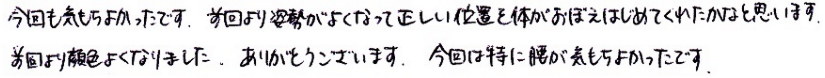 今回も気もちよかったです. 前回より姿勢がよくなって正しい位置を体がおぼえはじめてくれたかなと思います.
前回より顔色よくなりました. ありがとうございます. 今回は特に腰が気もちよかったです.